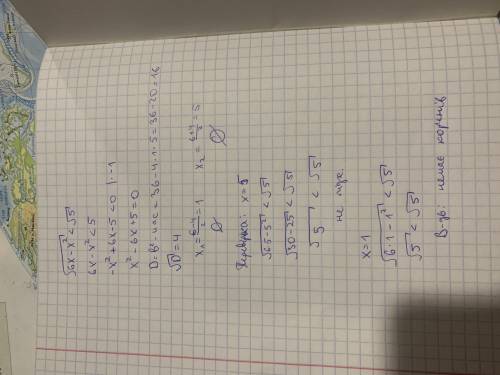 √(6x-x²) < √5
6x-x² < 5
-x²+6x-5=0 |:-1
x²-6x+5=0
D=b²-4ac=36-4·1·5=36-20=16
√D=4
x₁=(6-4)/2=1 x₂=(6+4)/2=5
∅ ∅
Перевірка: x=5
√(6·5-5²) < √5
√(30-25) < √5
√5 < √5
не підх.
x=1
√(6·1-1²) < √5
√5 < √5
В-дь: немає коренів